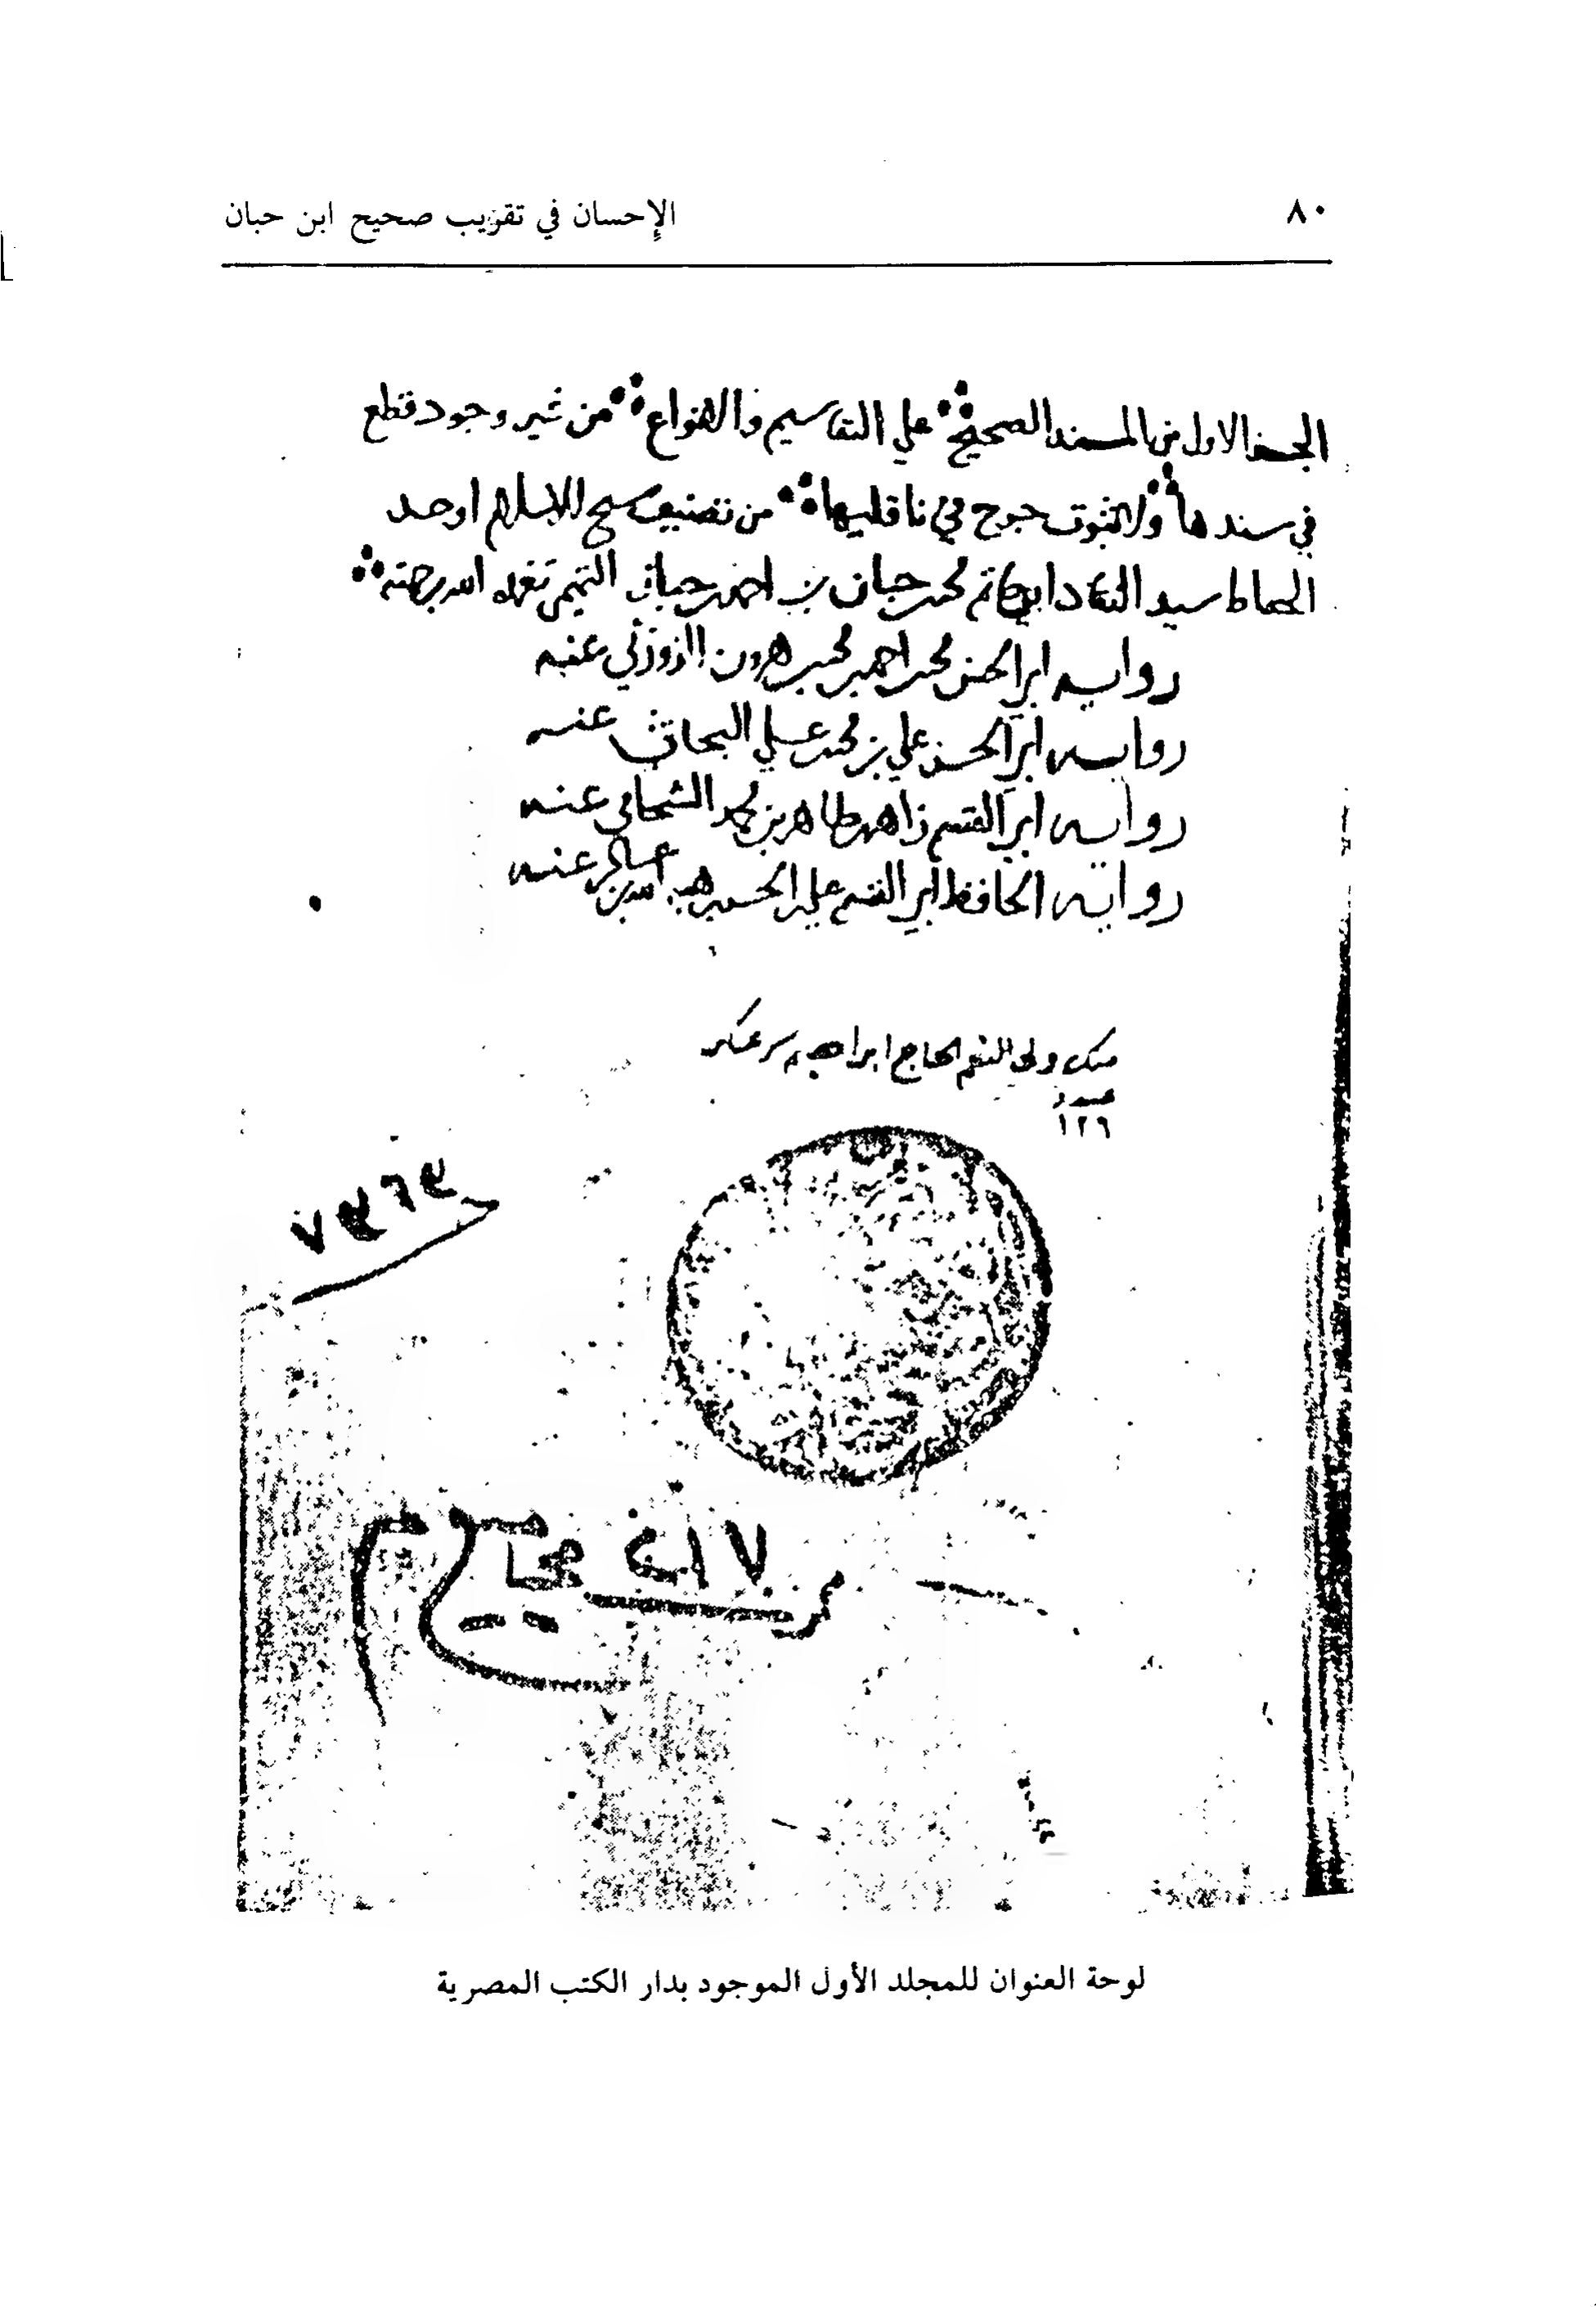 ٨٠
الإحسان في تقريب صحيح ابن حبان
الجزء الاول من المسند الصحيح على التقاسيم والانواع من غير وجود قطع
في سندها ولا ثبوت جرح في ناقليها من تصنيف شيخ الاسلام اوحد
الحفاظ سيد النقاد ابي حاتم محمد بن حبان بن احمد بن حبان التميمي تغمده الله برحمته
رواية ابي الحسن محمد بن احمد بن محمد بن هرون الزوزني عنه
رواية ابي الحسن علي بن محمد بن علي البحاثي عنه
رواية ابي القسم زاهر بن طاهر بن محمد الشحامي عنه
رواية الحافظ ابي القسم علي بن الحسن بن هبة الله بن عساكر عنه
ولي النعم الحاج ابراهيم سرعسكر
١٢٦
لوحة العنوان للمجلد الأول الموجود بدار الكتب المصرية